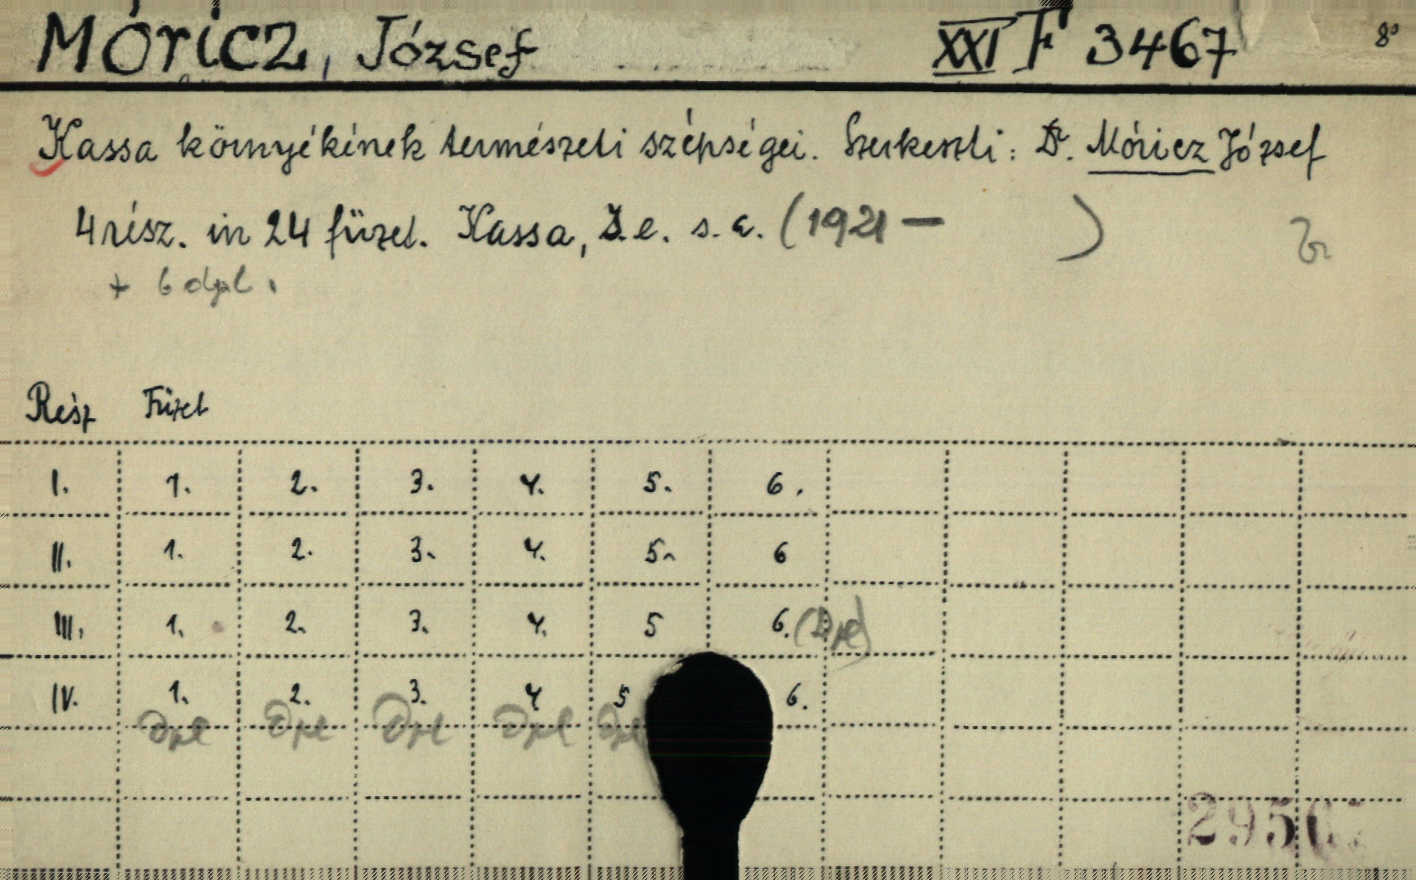 Móricz, József XXI F 3467 8°
Kassa környékének természeti szépségei. Szerkeszti: Dr. Móricz József
4 rész. in 24 füzet. Kassa, s. a. (1921 — )
+ 6 dpl.
Rész Füzet
I. 1. 2. 3. 4. 5. 6.
II. 1. 2. 3. 4. 5. 6
III. 1. 2. 3. 4. 5 6. (Dpl)
IV. 1. 2. 3. 4 5 6.
Dpl Dpl Dpl Dpl Dpl